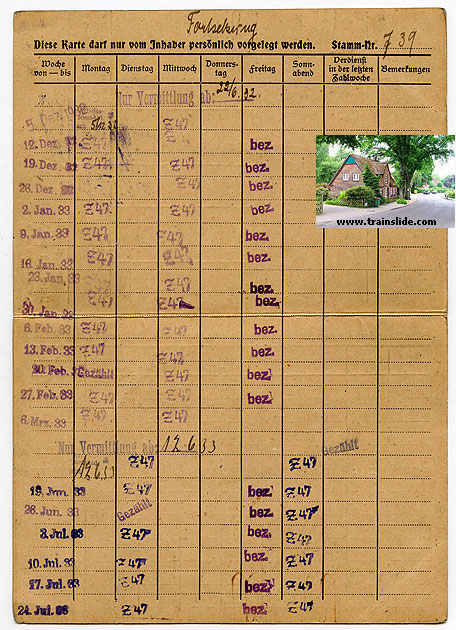 Fortsetzung
Diese Karte darf nur vom Inhaber persönlich vorgelegt werden. Stamm-Nr. 739
Woche von — bis Montag Dienstag Mittwoch Donners-tag Freitag Sonn-abend Verdienst in der letzten Zahlwoche Bemerkungen
Nur Vermittlung ab: 22/6.32.
5. Dez. 1932 5/12 32 Z47
12. Dez. Z47 bez.
19. Dez. 32 Z47 Z47 bez.
26. Dez. 32 Z47 bez.
2. Jan. 33 Z47 Z47 bez.
www.trainslide.com
9. Jan. 33 Z47 Z47 bez.
16. Jan. 33 Z47 Z47 bez.
23. Jan. 33 Z47 Z47 bez.
30. Jan. 33 Z47 Z47 bez.
6. Feb. 33 Z47 bez.
13. Feb. 33 Z47 Z47 bez.
20. Feb. Gezählt Z47 bez.
27. Feb. 33 Z47 Z47 bez.
6. Mrz. 33 Z47 Z47
Nur Vermittlung ab: 12 6 33 Gezählt
12 6 33 Z47 Z47
19. Jun. 33 Z47 bez. Z47
26. Jun. 33 Gezählt bez. Z47
3. Jul. 33 Z47 bez. Z47
10. Jul. 33 Z47 bez. Z47
17. Jul. 33 Z47 bez. Z47
24. Jul. Z47 bez. Z47